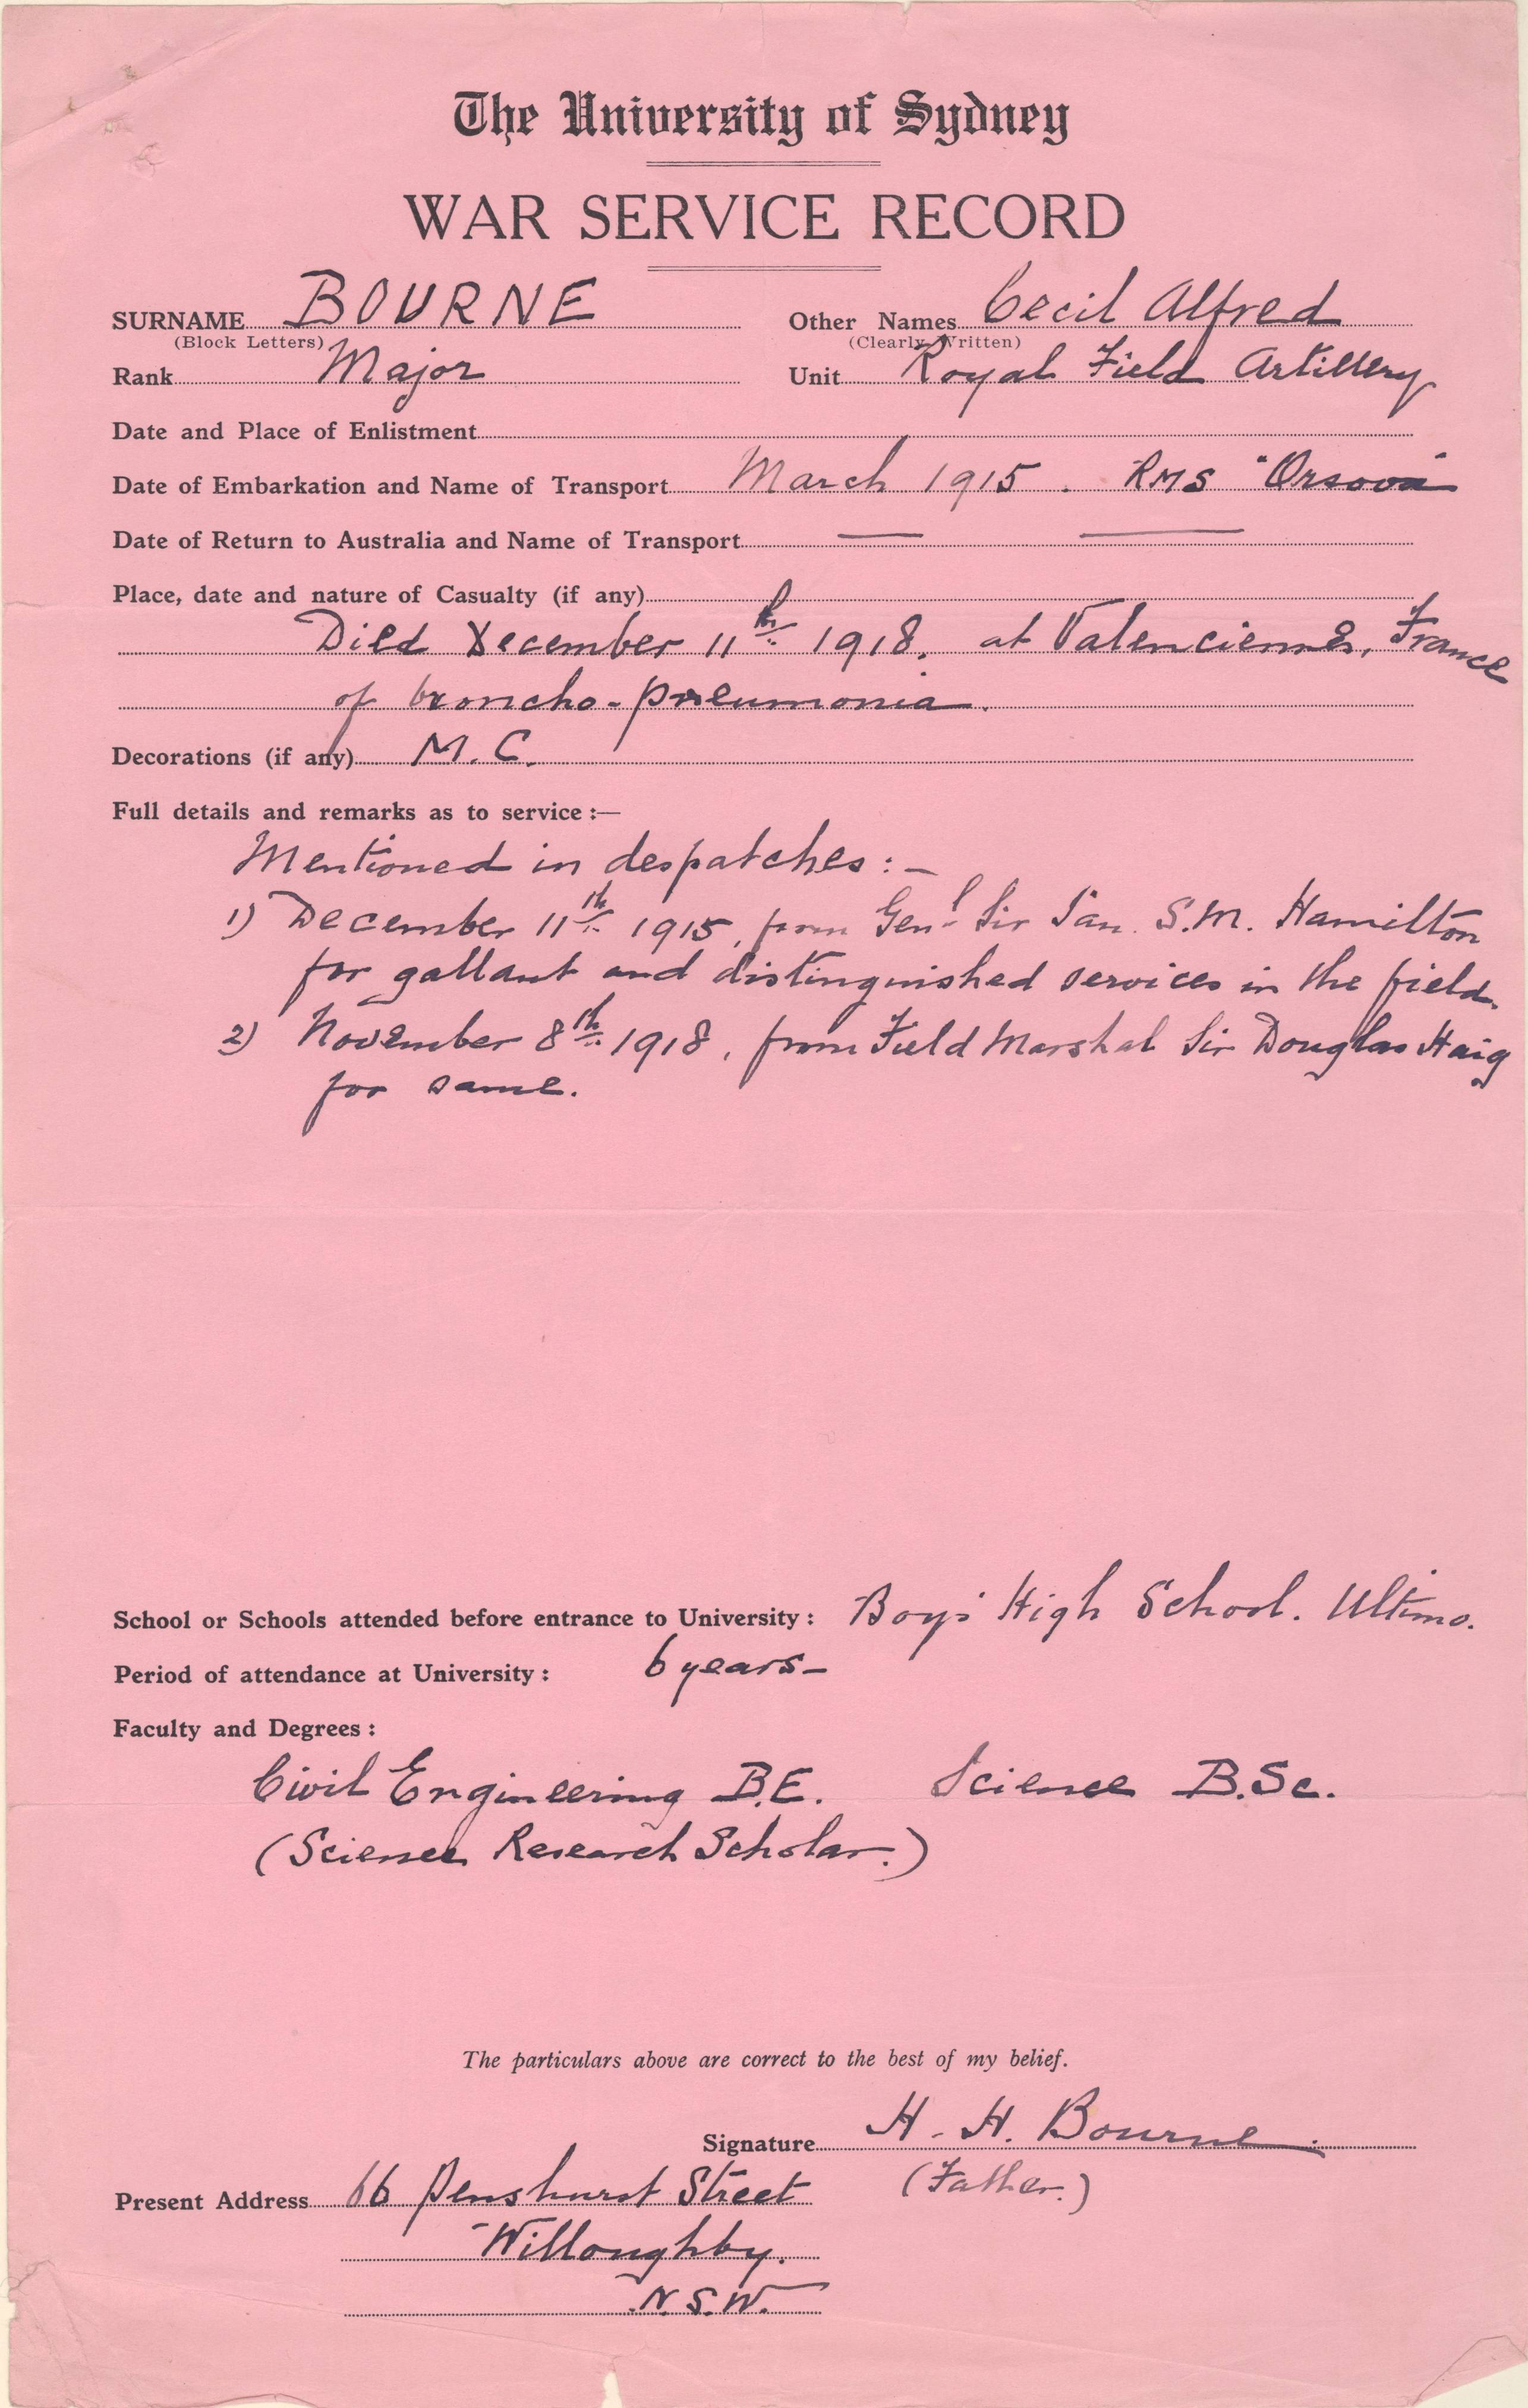 The University of Sydney
WAR SERVICE RECORD
SURNAME BOURNE Other Names Cecil Alfred
(Block Letters) (Clearly Written)
Rank Major Unit Royal Field Artillery
Date and Place of Enlistment
Date of Embarkation and Name of Transport March 1915. RMS "Orsova"
Date of Return to Australia and Name of Transport — —
Place, date and nature of Casualty (if any)
Died December 11th 1918. at Valenciennes, France
of broncho-pneumonia.
Decorations (if any) M.C.
Full details and remarks as to service:—
Mentioned in despatches:-
1) December 11th 1915, from Genl Sir Ian. S.M. Hamilton
for gallant and distinguished services in the field.
2) November 8th 1918, from Field Marshal Sir Douglas Haig
for same.
School or Schools attended before entrance to University: Boys' High School. Ultimo.
Period of attendance at University: 6 years-
Faculty and Degrees:
Civil Engineering B.E. Science B.Sc.
(Science Research Scholar.)
The particulars above are correct to the best of my belief.
Signature H. H. Bourne.
Present Address 66 Penshurst Street (Father.)
Willoughby.
N.S.W.